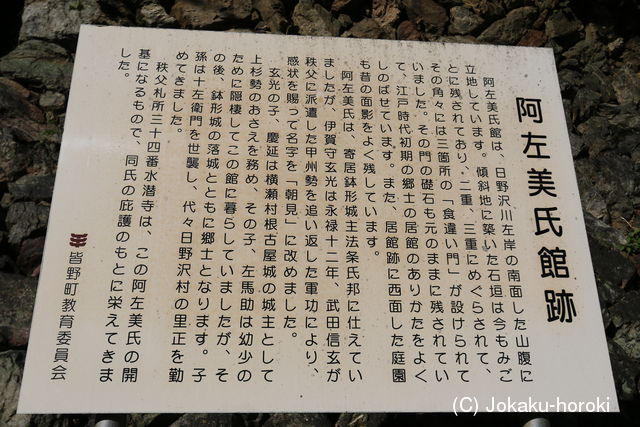 阿左美氏館跡
阿左美氏館は、日野沢川左岸の南面した山腹に
立地しています。傾斜地に築いた石垣は今もみご
とに残されており、二重、三重にめぐらされて、
その角々には三箇所の「食違い門」が設けられて
いました。その門の礎石も元のままに残されてい
て、江戸時代初期の郷士の居館のありかたをよく
しのばせています。また、居館跡に西面した庭園
も昔の面影をよく残しています。
阿左美氏は、寄居鉢形城主北条氏邦に仕えてい
ましたが、伊賀守玄光は永禄十二年、武田信玄が
秩父に派遣した甲州勢を追い返した軍功により、
感状を賜って名字を「朝見」に改めました。
玄光の子、慶延は横瀬村根古屋城の城主として
上杉勢のおさえを務め、その子、左馬助は幼少の
ために隠棲してこの館に暮らしていましたが、そ
の後、鉢形城の落城とともに郷士となります。子
孫は十左衛門を世襲し、代々日野沢村の里正を勤
めてきました。
秩父札所三十四番水潜寺は、この阿左美氏の開
基になるもので、同氏の庇護のもとに栄えてきま
した。
皆野町教育委員会
(C) Jokaku-horoki